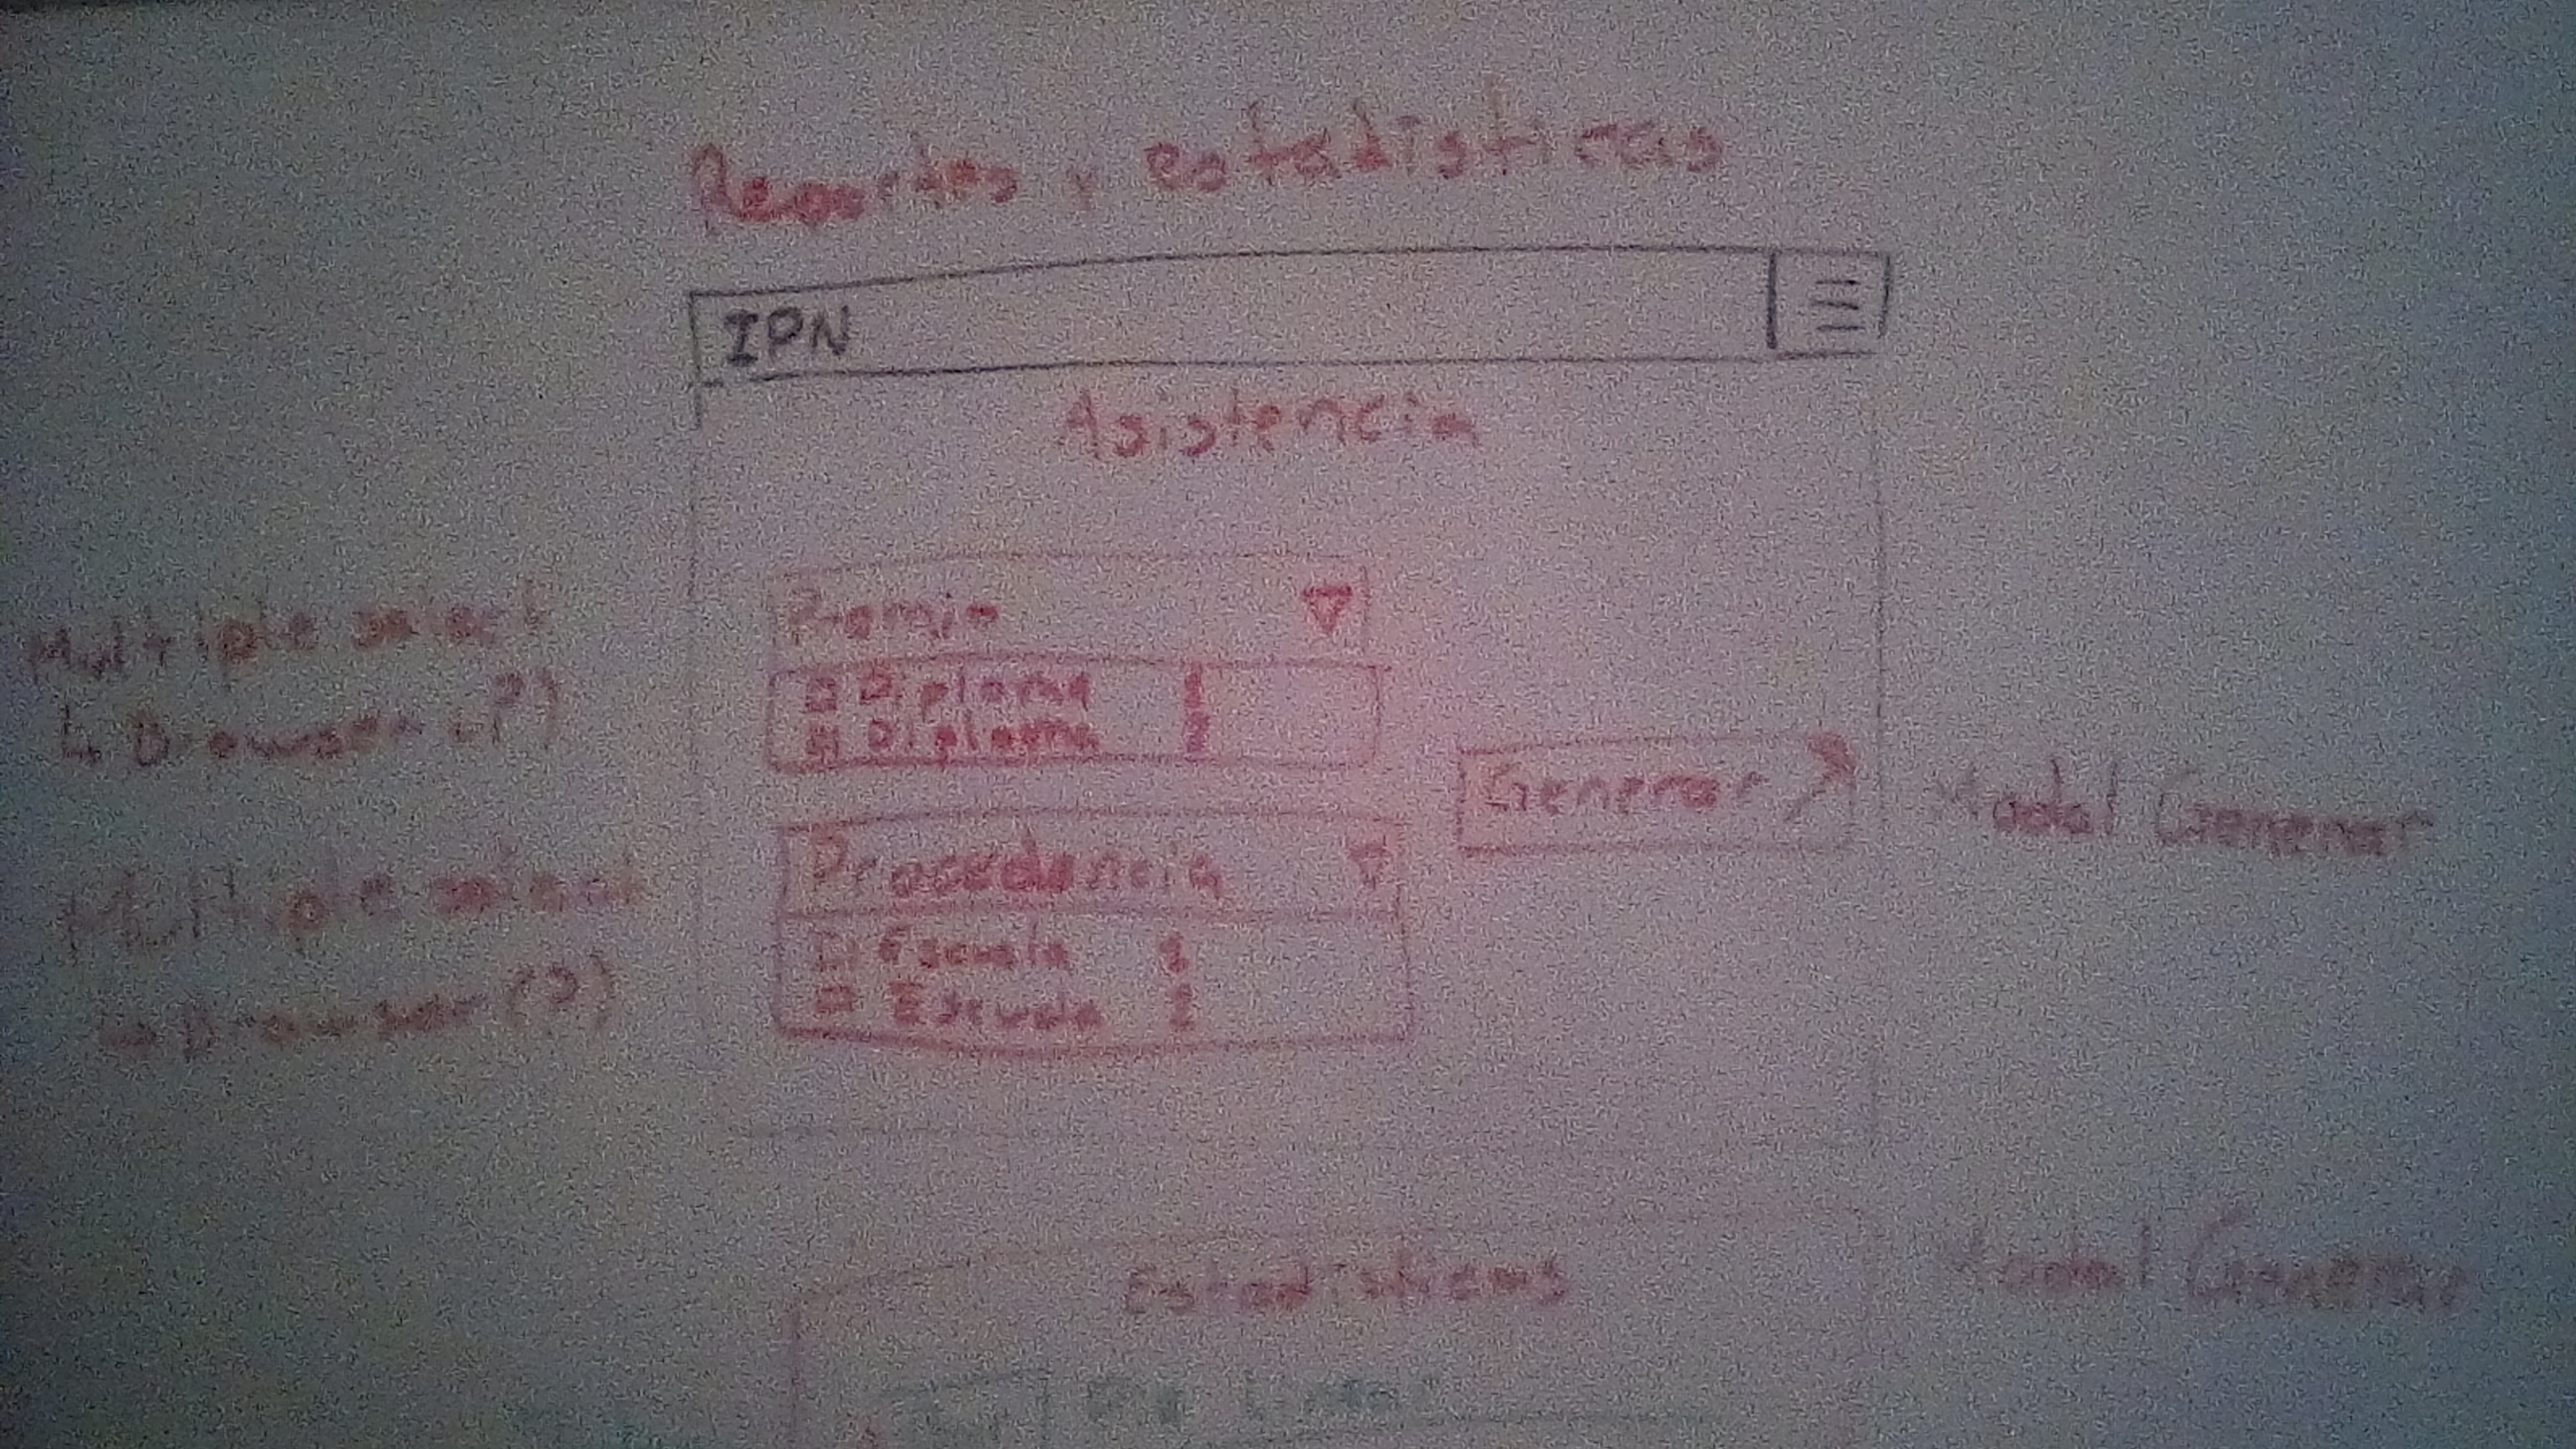 Reportes y estadísticas
IPN
Asistencia
Multiple select
↳ Browser (?)
Premio
Diploma 1
Diploma 2
Generar
Modal Generar
Multiple select
↳ Browser (?)
Procedencia
Escuela 1
Escuela 2
Estadísticas
Modal Generar